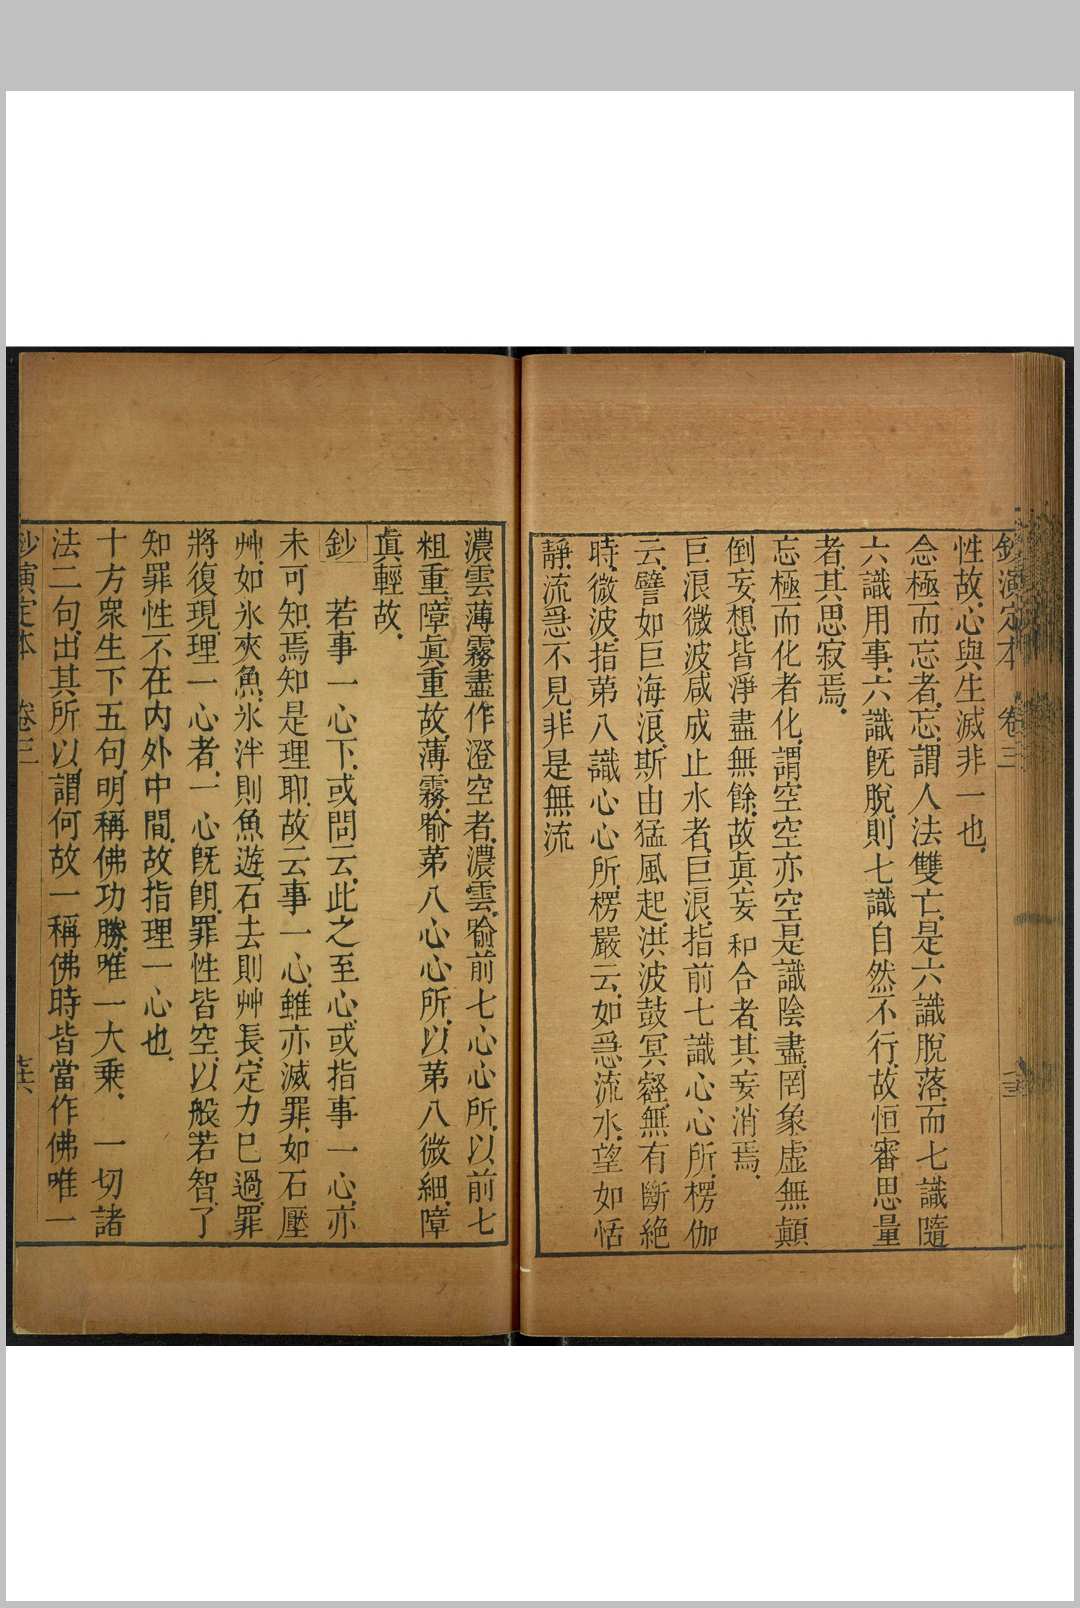 鈔演定本　卷三
性故心與生滅非一也
念極而忘者忘謂人法雙亡是六識脫落而七識隨
六識用事六識旣脫則七識自然不行故恒審思量
者其思寂焉
忘極而化者化謂空空亦空是識陰盡罔象虛無顚
倒妄想皆淨盡無餘故眞妄和合者其妄消焉
巨浪微波咸成止水者巨浪指前七識心心所楞伽
云譬如巨海浪斯由猛風起洪波鼓冥壑無有斷絶
時微波指第八識心心所楞嚴云如急流水望如恬
靜流急不見非是無流
濃雲薄霧盡作澄空者濃雲喻前七心心所以前七
粗重障眞重故薄霧喻第八心心所以第八微細障
眞輕故
鈔　若事一心下或問云此之至心或指事一心亦
未可知焉知是理耶故云事一心雖亦滅罪如石壓
艸如氷夾魚氷泮則魚遊石去則艸長定力已過罪
將復現理一心者一心旣朗罪性皆空以般若智了
知罪性不在內外中間故指理一心也
十方衆生下五句明稱佛功勝唯一大乘　一切諸
法二句出其所以謂何故一稱佛時皆當作佛唯一
鈔演定本　卷三